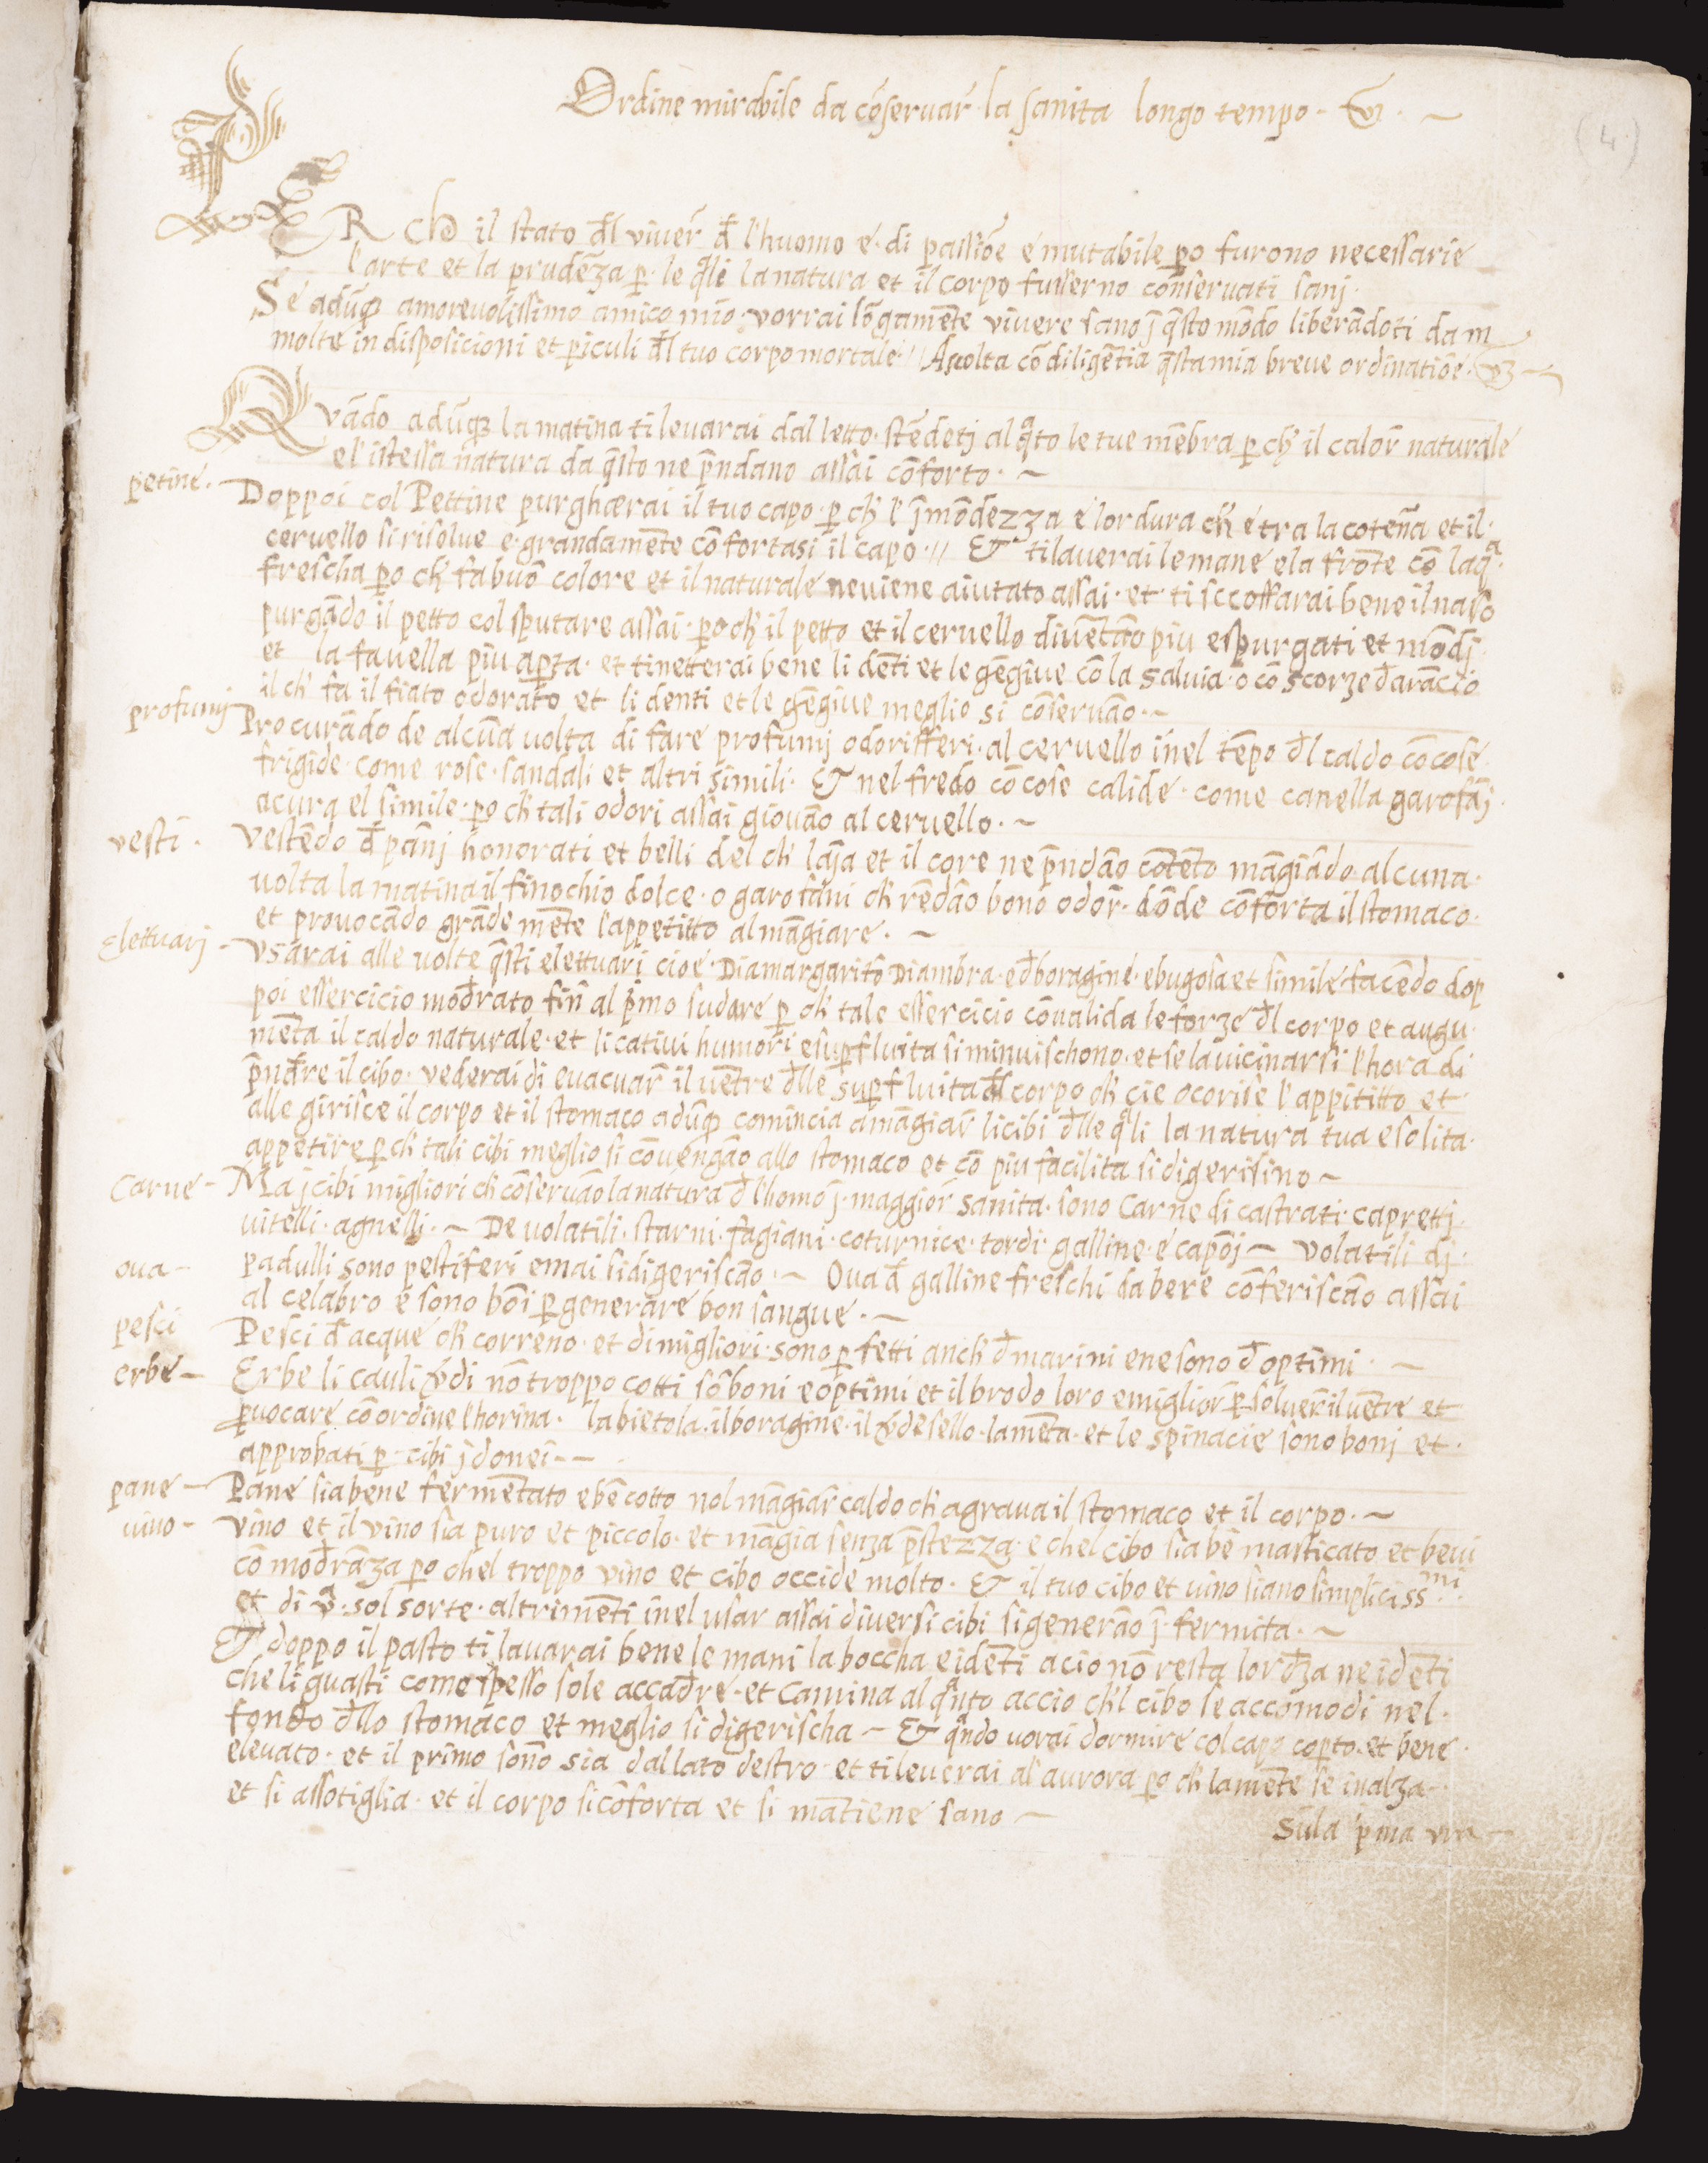 Ordine mirabile da cōservar̄ la sanita longo tempo
(4.)
PER ch̄ il stato đl viver̄ đ l'huomo e di passiōe e mutabile ꝑo furono necessarie
l'arte et la prudēza ꝑ le q̄li la natura et il corpo fusserno cōnservati sanj.
Se adūqꝫ amorevolissimo amico mio vorrai lōgamēte vivere sano j̄ q̄sto mōdo liberādoti da m
molte indisposicioni et ꝑiculi đl tuo corpo mortale // Ascolta cō diligētia q̄sta mia breve ordinatiōe.
Quādo adūqꝫ la matina ti levarai dal letto stēdetj al q̄to le tue mēbra ꝑ ch̄ il calor̄ naturale
el' istessa natura da q̄sto ne p̄ndano assai cōforto. ~
petine.
Doppoi col Pettine purghærai il tuo capo ꝑ ch̄ l' j̄mōdezza e lordura ch̄ e tra la cotēna et il
cervello si risolve e grandamēte cōfortasi il capo // & ti laverai le mane e la frōte cō laq̄ᵃ
frescha ꝑo ch̄ fa buō colore et il naturale ne viene aiutato assai et ti sccoffarai bene il naso
purgādo il petto col sputare assai ꝑo ch̄ il petto et il cervello divētāo piu espurgati et mōdj
et la favella piu aꝑta et ti netterai bene li dēti et le gēgive cō la salvia o cō scorze đ arācio
il ch̄ fa il fiato odorato et li denti et le gēgive meglio si cōservāo ~
profumj
Procurādo de alcūa volta di fare profumj odorifferi al cervello inel tēpo đl caldo cō cose
frigide come rose sandali et altri simili & nel fredo cō cose calide come canella garofāj
acura el simile ꝑo ch̄ tali odori assai giovāo al cervello. ~
vesti.
Vestēdo đ pānj honorati et belli del ch̄ laj̄a et il core ne p̄ndāo cōtēto māgiādo alcuna
volta la matina il finochio dolce o garofāni ch̄ rēdāo bono odor̄ dōde cōforta il stomaco
et provocādo grāde mēte l'appetitto al māgiare. ~
Elettuarj -
Usarai alle volte q̄sti elettuari cioe Diamargaritō Diambra eđ boragine e bugosa et simile facēdo dop
poi essercicio mođrato finī al p̄mo sudare ꝑ ch̄ tale essercicio cōvalida le forze đl corpo et augu
mēta il caldo naturale et li cativi humori e suꝑfluita si minuischono et se lavicinarsi l'hora di
p̄nđre il cibo vederai di evacuar̄ il vētre đlle suꝑfluita đl corpo ch̄ cie ocorise l'appititto et
alle girisce il corpo et il stomaco adūqꝫ comincia a māgiar̄ li cibi đlle q̄li la natura tua e solita
appetire ꝑ ch̄ tali cibi meglio si cōvengāo allo stomaco et cō piu facilita si digerisino ~
Carne -
Ma j cibi migliori ch̄ cōservāo la natura đ l'homo j̄ maggior̄ sanita sono Carne di castrati capretti
vitelli agnelli. ~ De volatili starni fagiani coturnice tordi galline e capōj ~ volatili dj
padulli sono pestiferi e mai si digeriscāo ~ Ova đ galline freschi da bere cōferiscāo assai
ova -
al celabro e sono bōi ꝑ generare bon sangue. ~
pesci
Pesci đ acque ch̄ correno et di migliori sono ꝑfetti anch̄ đ marini ene sono đ optimi ~
erbe -
Erbe li cauli v̄di nō troppo cotti sō boni e optimi et il brodo loro e miglior̄ ꝑ solver̄ il vētre et
ꝓvocare cō ordine l'horina. la bietola il boragine il v̄de sello la mēta et le spinacie sono bonj et
approbati ꝑ cibi jdonei ~
pane -
Pane sia bene fermētato e bē cotto nol māgiar̄ caldo ch̄ agrava il stomaco et il corpo. ~
vino -
Vino et il vino sia puro et piccolo et māgia senza p̄stezza e chel cibo sia bē masticato et bevi
cō mođrāza ꝑo chel troppo vino et cibo occide molto & il tuo cibo et vino siano simplicissᵐⁱ
et di v̄ᵃ sol sorte altrimēti inel usar assai diversi cibi si generāo j̄fermita. ~
& doppo il pasto ti lavarai bene le mani la boccha e i dēti acio nō resta lorđza ne i dēti
che li guasti come spesso sole accađre et camina al q̄ᵃnto accio ch̄l cibo se accōmodi nel
fondo đllo stomaco et meglio si digerischa ~ & q̄ᵃndo vorai dormire col capo coꝑto et bene
elevato et il primo sōno sia dal lato destro et ti leverai al' aurora ꝑo ch̄ la mēte se inalza
et si assotiglia et il corpo si cōforta et si mātiene sano ~